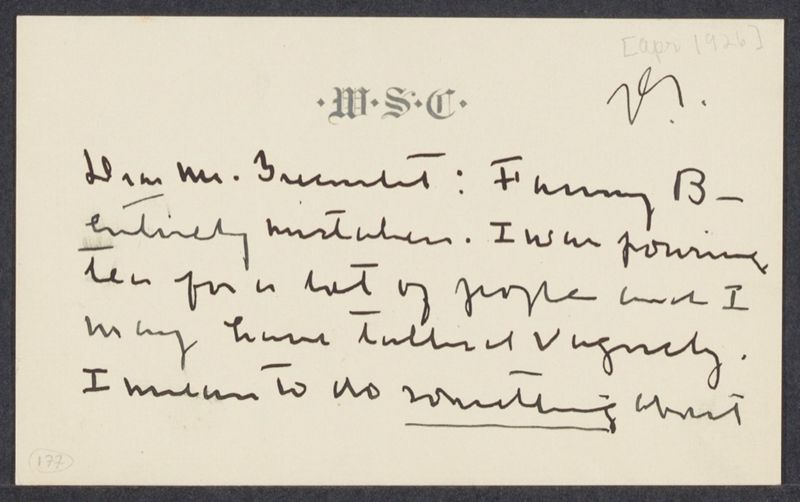 [Apr 1926]
·W·S·C·
Dear Mr. : Fanny B—
entirely mistaken. I was pouring
tea for a lot of people and I
may have talked vaguely.
I mean to do something about
177